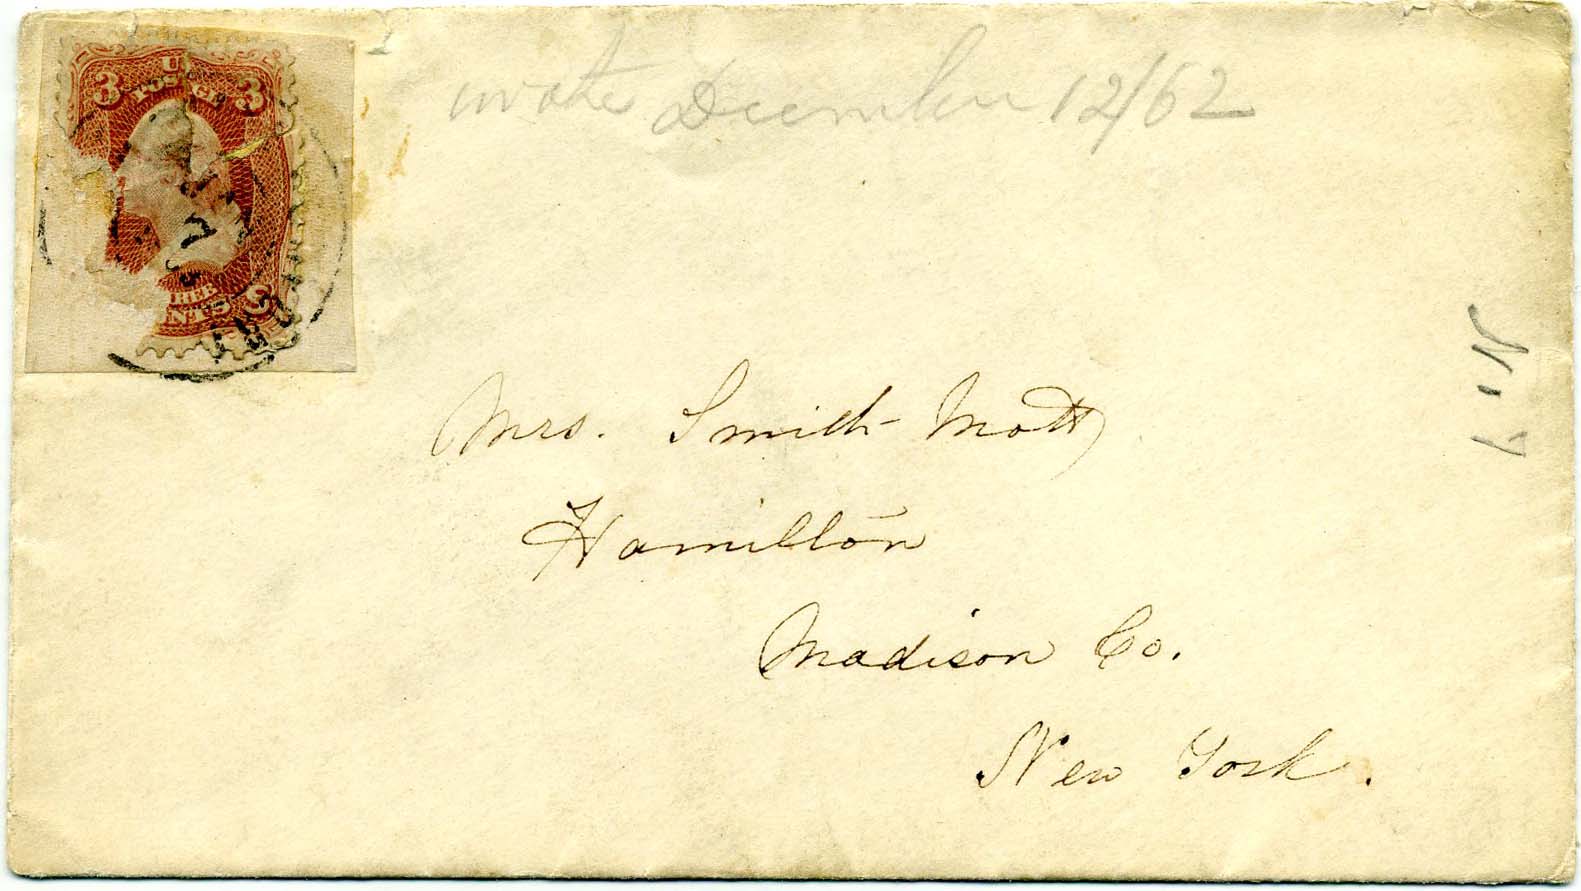 wrote December 12/62
U
POSTAGE
3 3
Mrs. Smith Mott
Hamilton
Madison Co.
New York.